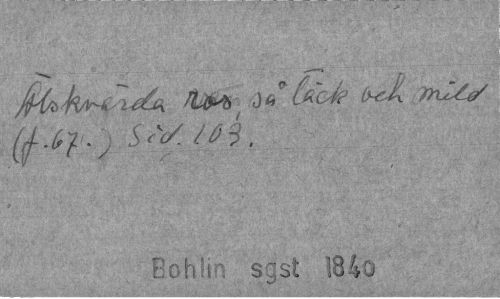 Älskvärda ros, så täck och mild
(f.67.) Sid. 103.
Bohlin sgst 1840